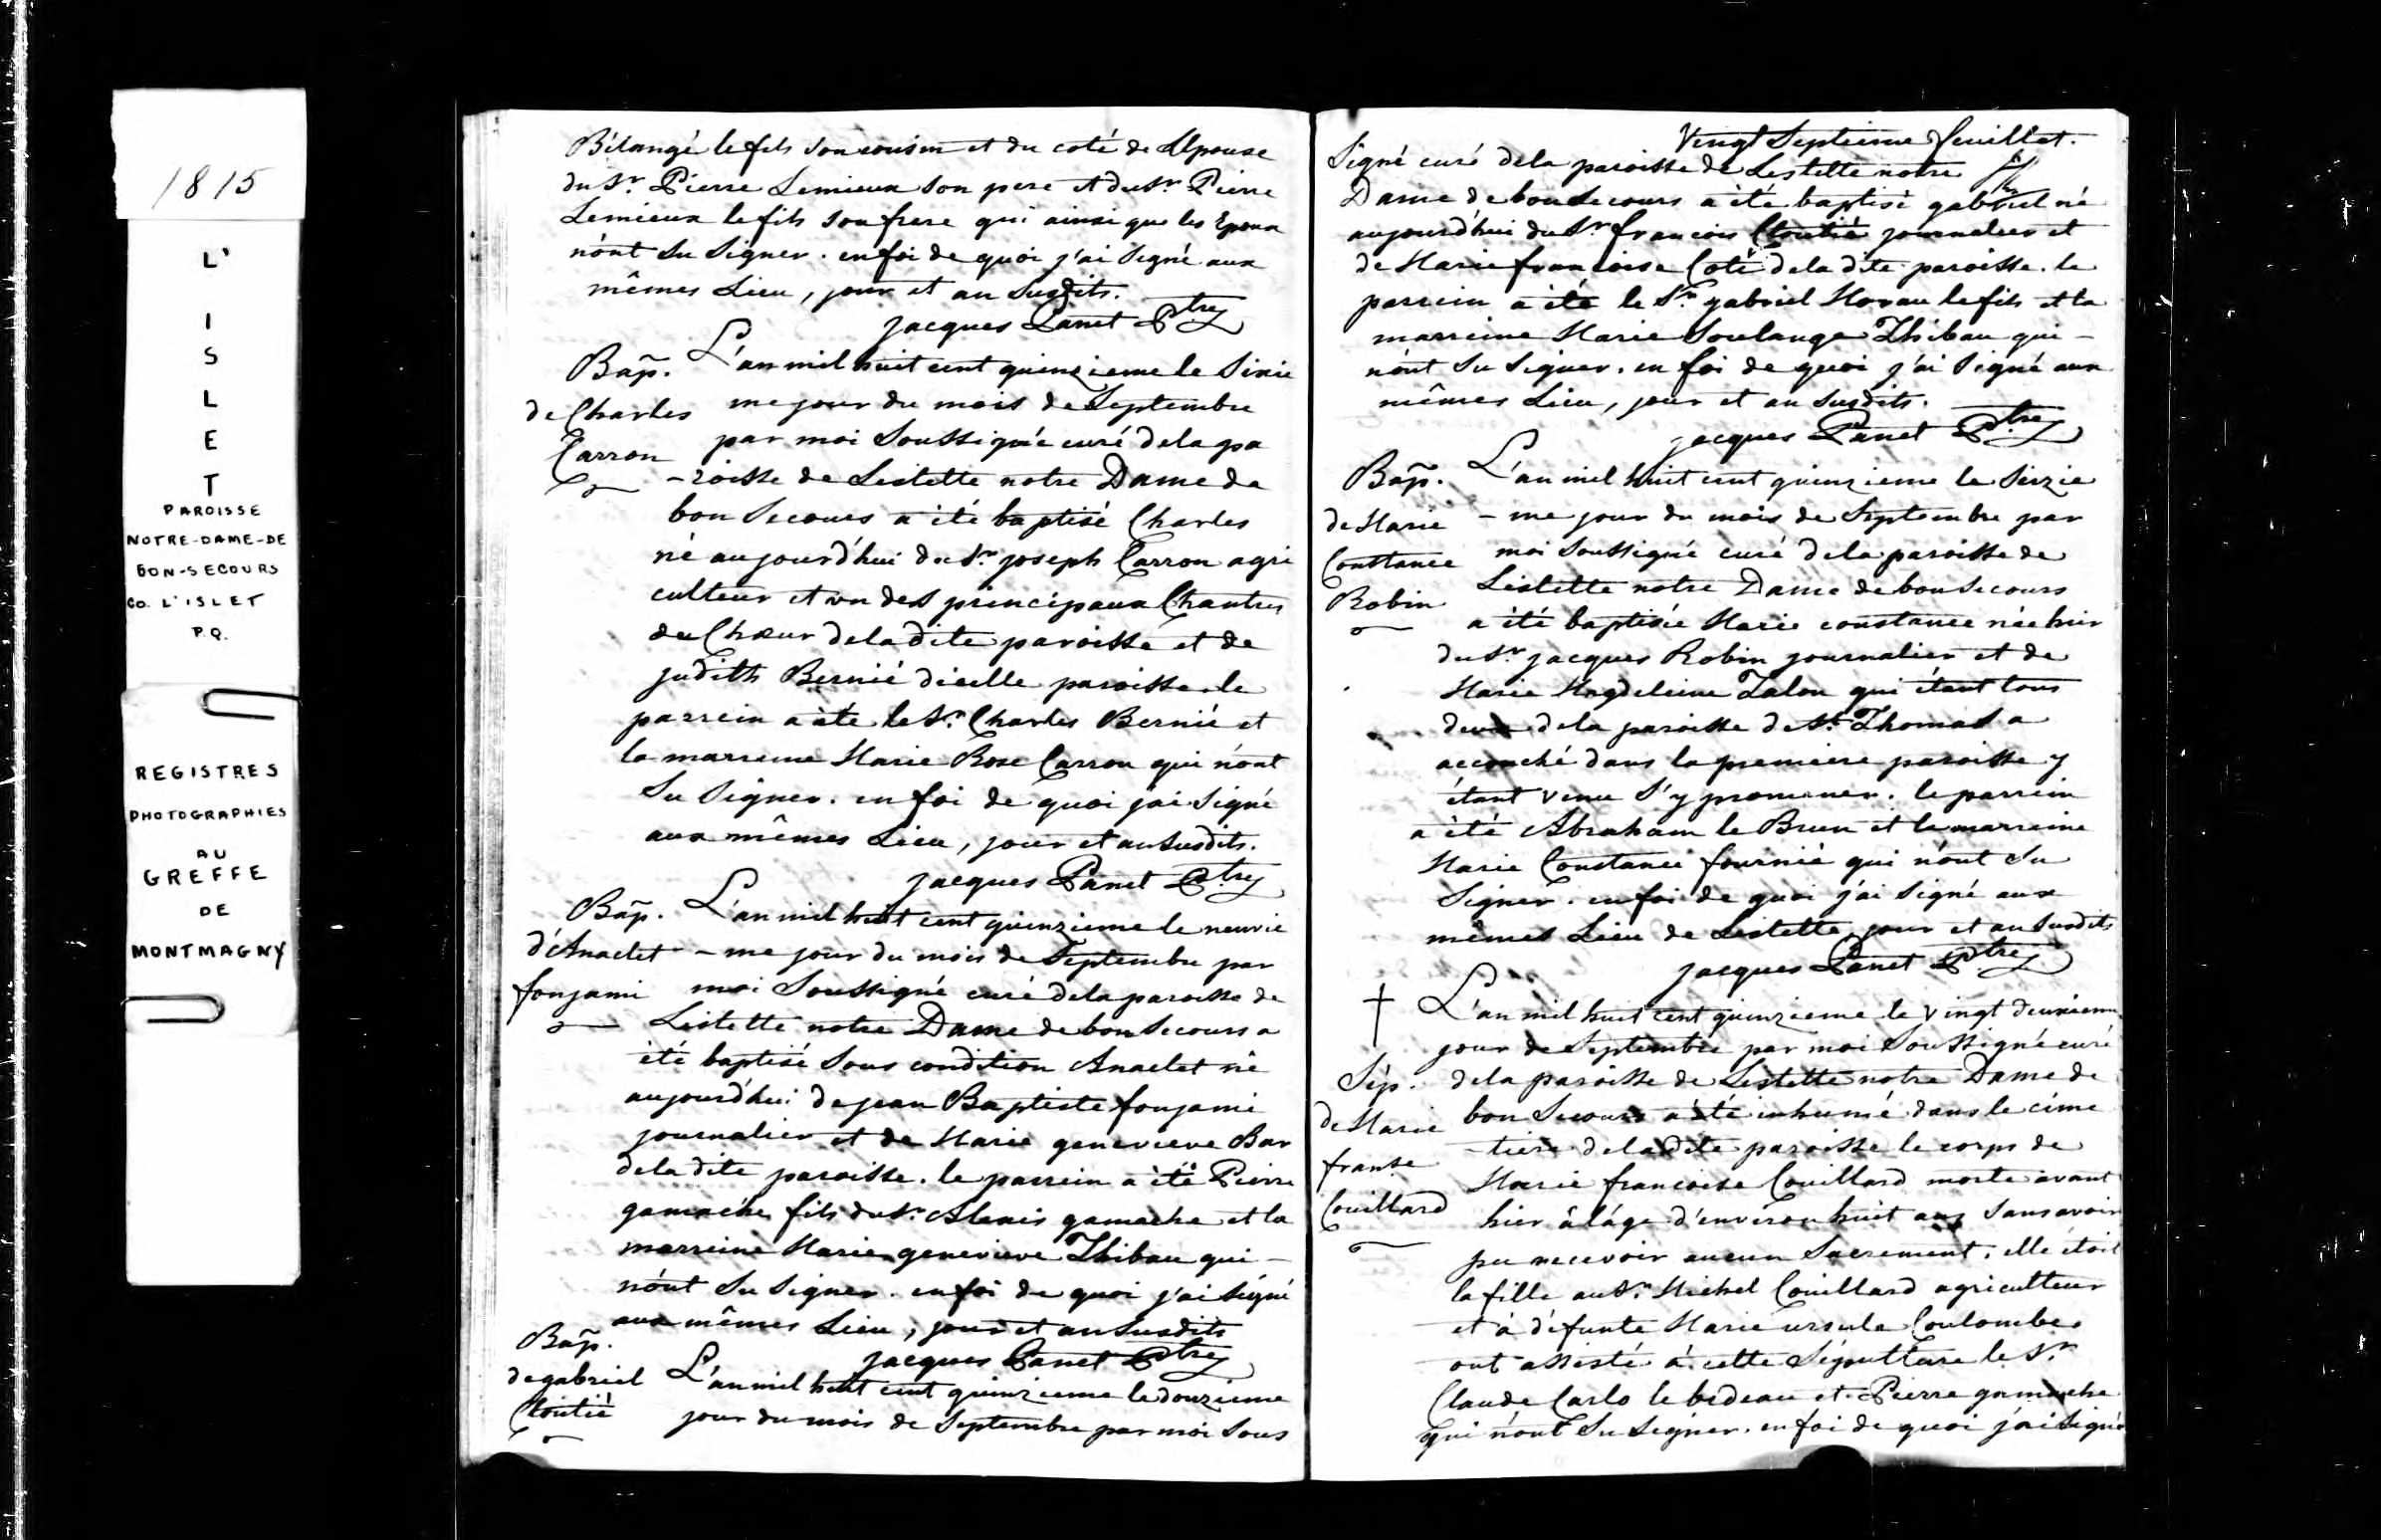 1815
L'
I
S
L
E
T
PAROISSE
NOTRE-DAME-DE
BON-SECOURS
CO. L'ISLET
P.Q.
REGISTRES
PHOTOGRAPHIES
AU
GREFFE
DE
MONTMAGNY
Bélangé le fils son cousin et du coté de l'Epouse
du Sr. Pierre Lemieux son pere et du Sr. Pierre
Lemieux le fils son frere qui ainsi que les Epoux
n'ont Su Signer. en foi de quoi j'ai Signé aux
mêmes Lieu, jour et an Susdits.
jacques Panet Ptre
Bap̃. L'an mil huit cent quinzieme le Sixie
de Charles me jour du mois de Septembre
Carron par moi Soussigné curé de la pa
-roisse de Listette notre Dame de
bon Secours a été baptisé Charles
né aujourd'hui du Sr. joseph Carron agri
culteur et un des principaux Chantres
du Chœur de la dite paroisse et de
judith Bernié d'icelle paroisse. le
parrein a été le Sr. Charles Bernié et
la marreine Marie Rose Carron qui n'ont
Su Signer. en foi de quoi j'ai Signé
aux mêmes Lieu, jour et an Susdits.
jacques Panet Ptre
Bap̃. L'an mil huit cent quinzieme le neuvie
d'Anaclet -me jour du mois de Septembre par
fonjami moi Soussigné curé de la paroisse de
Listette notre Dame de bon Secours a
été baptisé Sous condition Anaclet né
aujourd'hui de jean Baptiste fonjami
journalier et de Marie genevieve Bar
de la dite paroisse. le parrein a été Pierre
gamache fils du Sr. Alexis gamache et la
marreine Marie genevieve Thibau qui -
n'ont Su Signer. en foi de quoi j'ai Signé
aux mêmes Lieu, jour et an Susdits
jacques Panet Ptre
Bap̃.
de gabriel L'an mil huit cent quinzieme le douzieme
Cloutié jour du mois de Septembre par moi Sous
Vingt Septieme feuillet.
Signé curé de la paroisse de Listette notre
Dame de bon Secours a été baptisé gabriel né
aujourd'hui du Sr. francois Cloutié journalier et
de Marie francoise Coté de la dite paroisse. le
parrein a été le Sr. gabriel Morau le fils et la
marreine Marie Soulange Thibau qui -
n'ont Su Signer. en foi de quoi j'ai Signé aux
mêmes Lieu, jour et an Susdits.
jacques Panet Ptre
Bap̃. L'an mil huit cent quinzieme le Seizie
de Marie -me jour du mois de Septembre par
Constance moi Soussigné curé de la paroisse de
Robin Listette notre Dame de bon Secours
a été baptisée Marie constance née hier
du Sr. jacques Robin journalier et de
Marie Magdeleine Talon qui étant tous
deux de la paroisse de St. Thomas a
accouché dans la premiere paroisse y
étant venue S'y promener. le parrein
a été Abraham le Brun et la marreine
Marie Constance fournié qui n'ont Su
Signer. en foi de quoi j'ai Signé aux
mêmes Lieu de Listette, jour et an Susdits
jacques Panet Ptre
L'an mil huit cent quinzieme le vingt deuxieme
jour de Septembre par moi Soussigné curé
Sép. de la paroisse de Listette notre Dame de
de Marie bon Secours a été inhumé dans le cime
-tiere de la dite paroisse le corps de
franse Marie francoise Couillard morte avant
Couillard hier à l'âge d'environ huit ans Sans avoir
pu recevoir aucun Sacrement. elle étoit
la fille au Sr. Michel Couillard agriculteur
et à défunte Marie ursule Coulombe.
ont assisté à cette Sépulture le Sr.
Claude Carlo le bedeau et Pierre gamache
qui n'ont Su Signer. en foi de quoi j'ai Signé